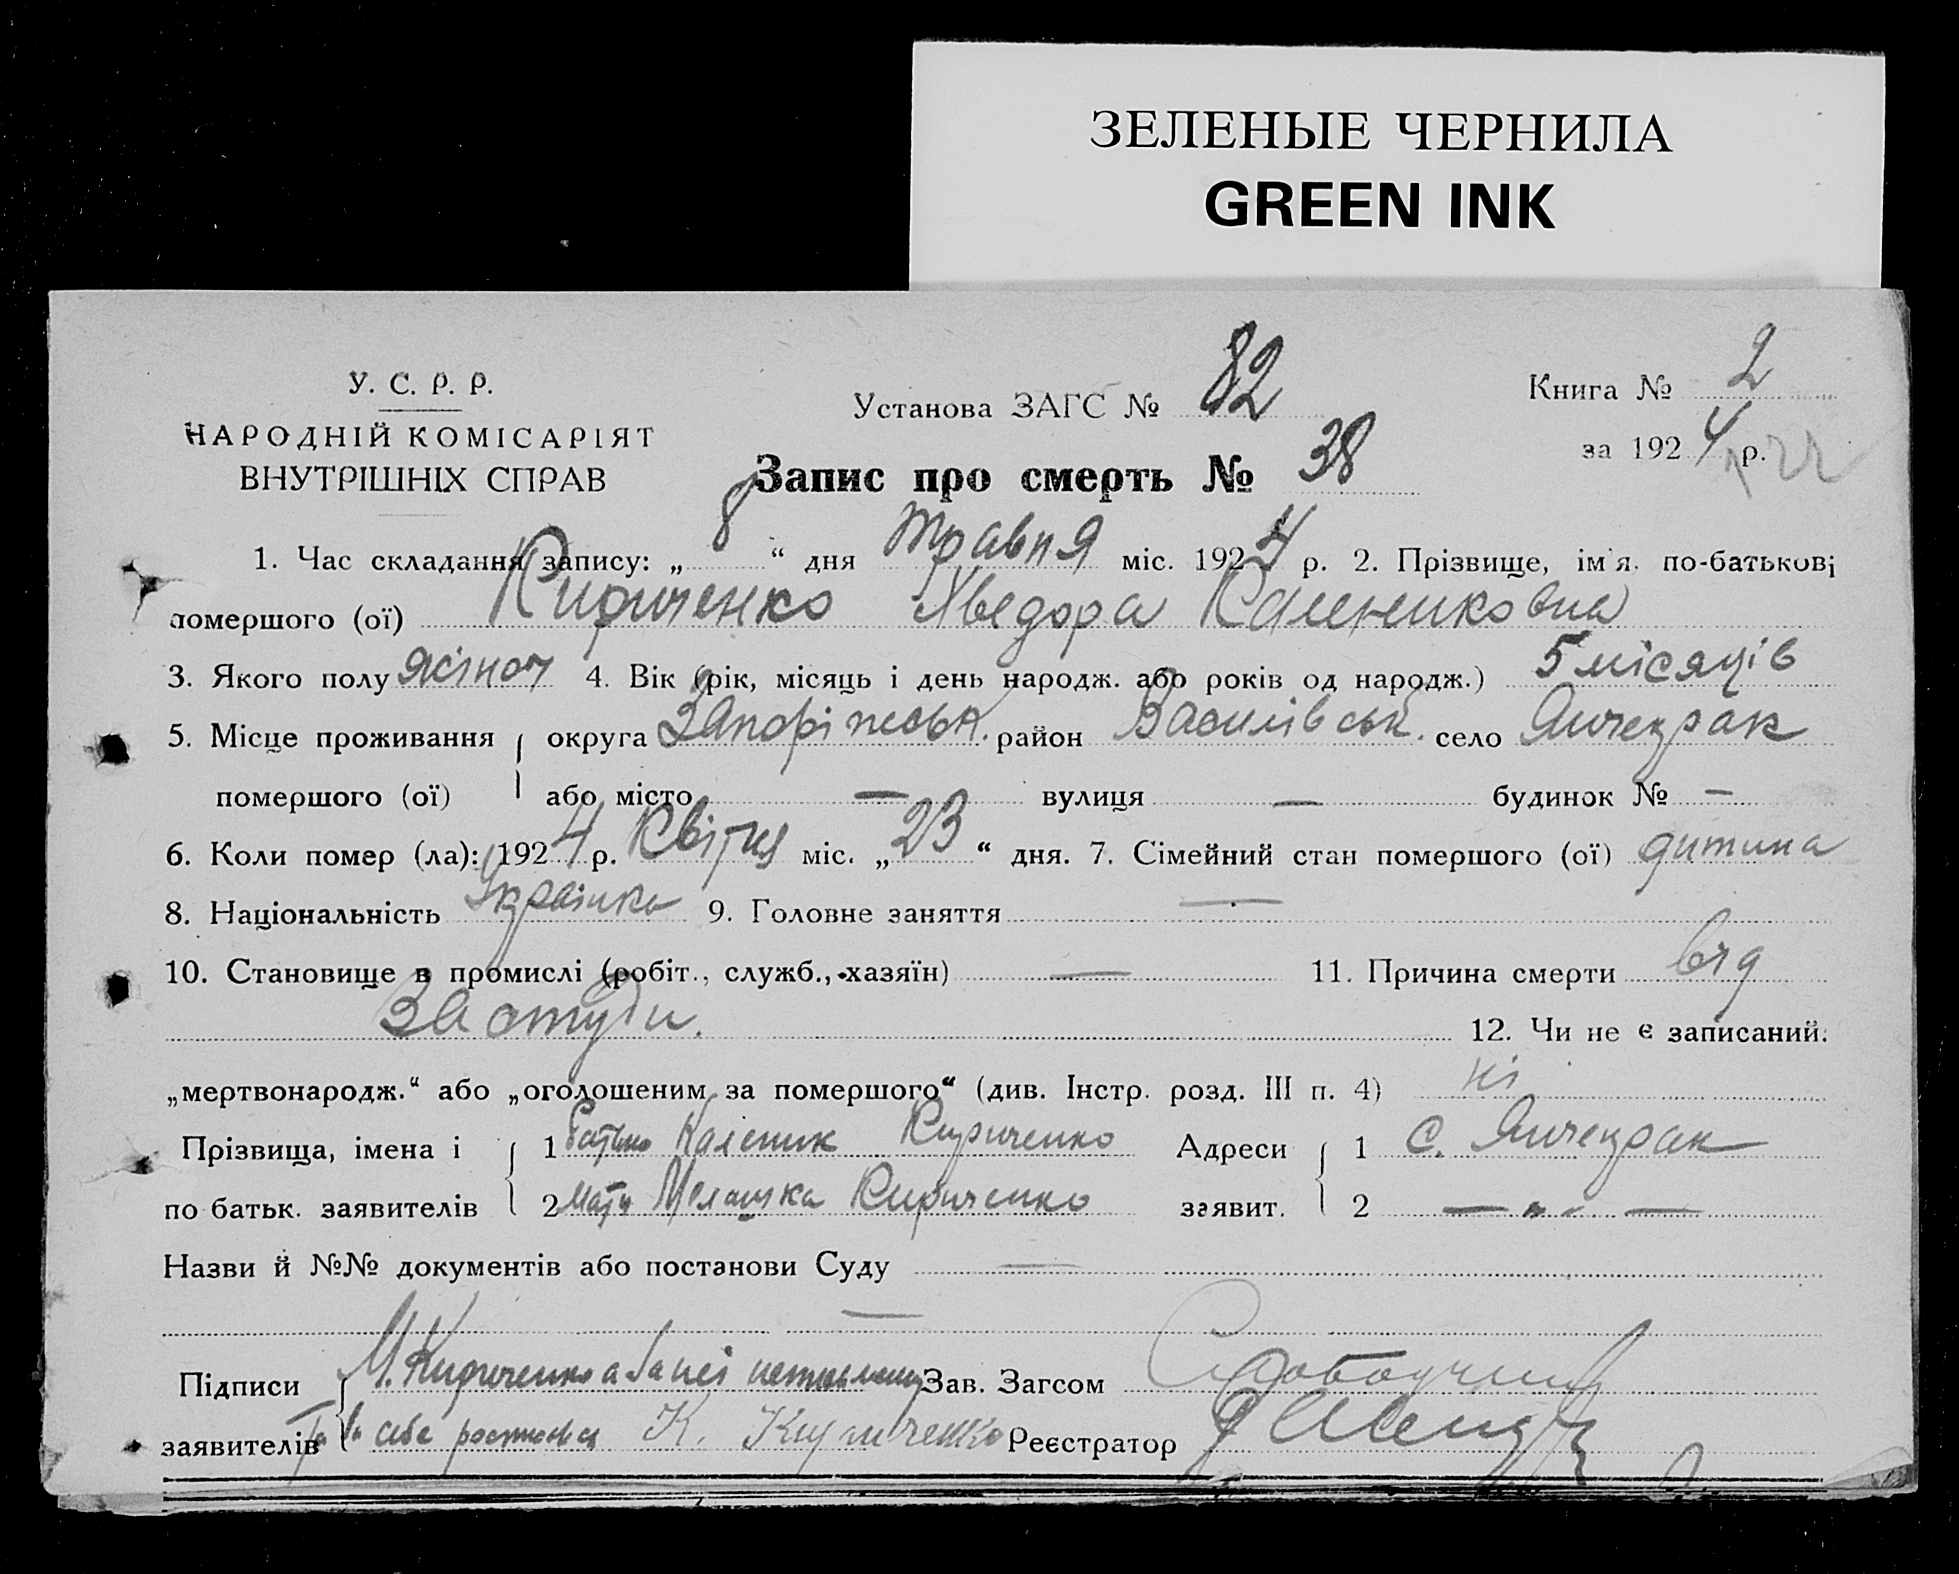 ЗЕЛЕНЫЕ ЧЕРНИЛА
GREEN INK
У. С. Р. Р.
НАРОДНІЙ КОМІСАРІЯТ
ВНУТРІШНІХ СПРАВ
Установа ЗАГС № 82
Книга № 2
за 1924 р.
Запис про смерть № 38
1. Час складання запису: „8“ дня травня міс. 1924 р. 2. Прізвище, ім'я, по-батькові
помершого (ої) Кириченко Хведора Калениковна
3. Якого полу жіноч 4. Вік (рік, місяць і день народж. або років од народж.) 5 місяців
5. Місце проживання округа Запоріжськ. район Василівськ. село Янчекрак
помершого (ої) або місто — вулиця — будинок № —
6. Коли помер (ла): 1924 р. Квітня міс. „23“ дня. 7. Сімейний стан помершого (ої) дитина
8. Національність Українка 9. Головне заняття —
10. Становище в промислі (робіт., служб., хазяїн) — 11. Причина смерти від
Застуди. 12. Чи не є записаний:
„мертвонародж.“ або „оголошеним за помершого“ (див. Інстр. розд. III п. 4) ні
Прізвища, імена і 1 батько Каленик Кириченко Адреси 1 с. Янчекрак
по батьк. заявителів 2 мати Мелашка Кириченко заявит. 2 — „ —
Назви й №№ документів або постанови Суду —
—
Підписи М. Кириченко а за неї Зав. Загсом
заявителів за себе К. Кириченко Реєстратор